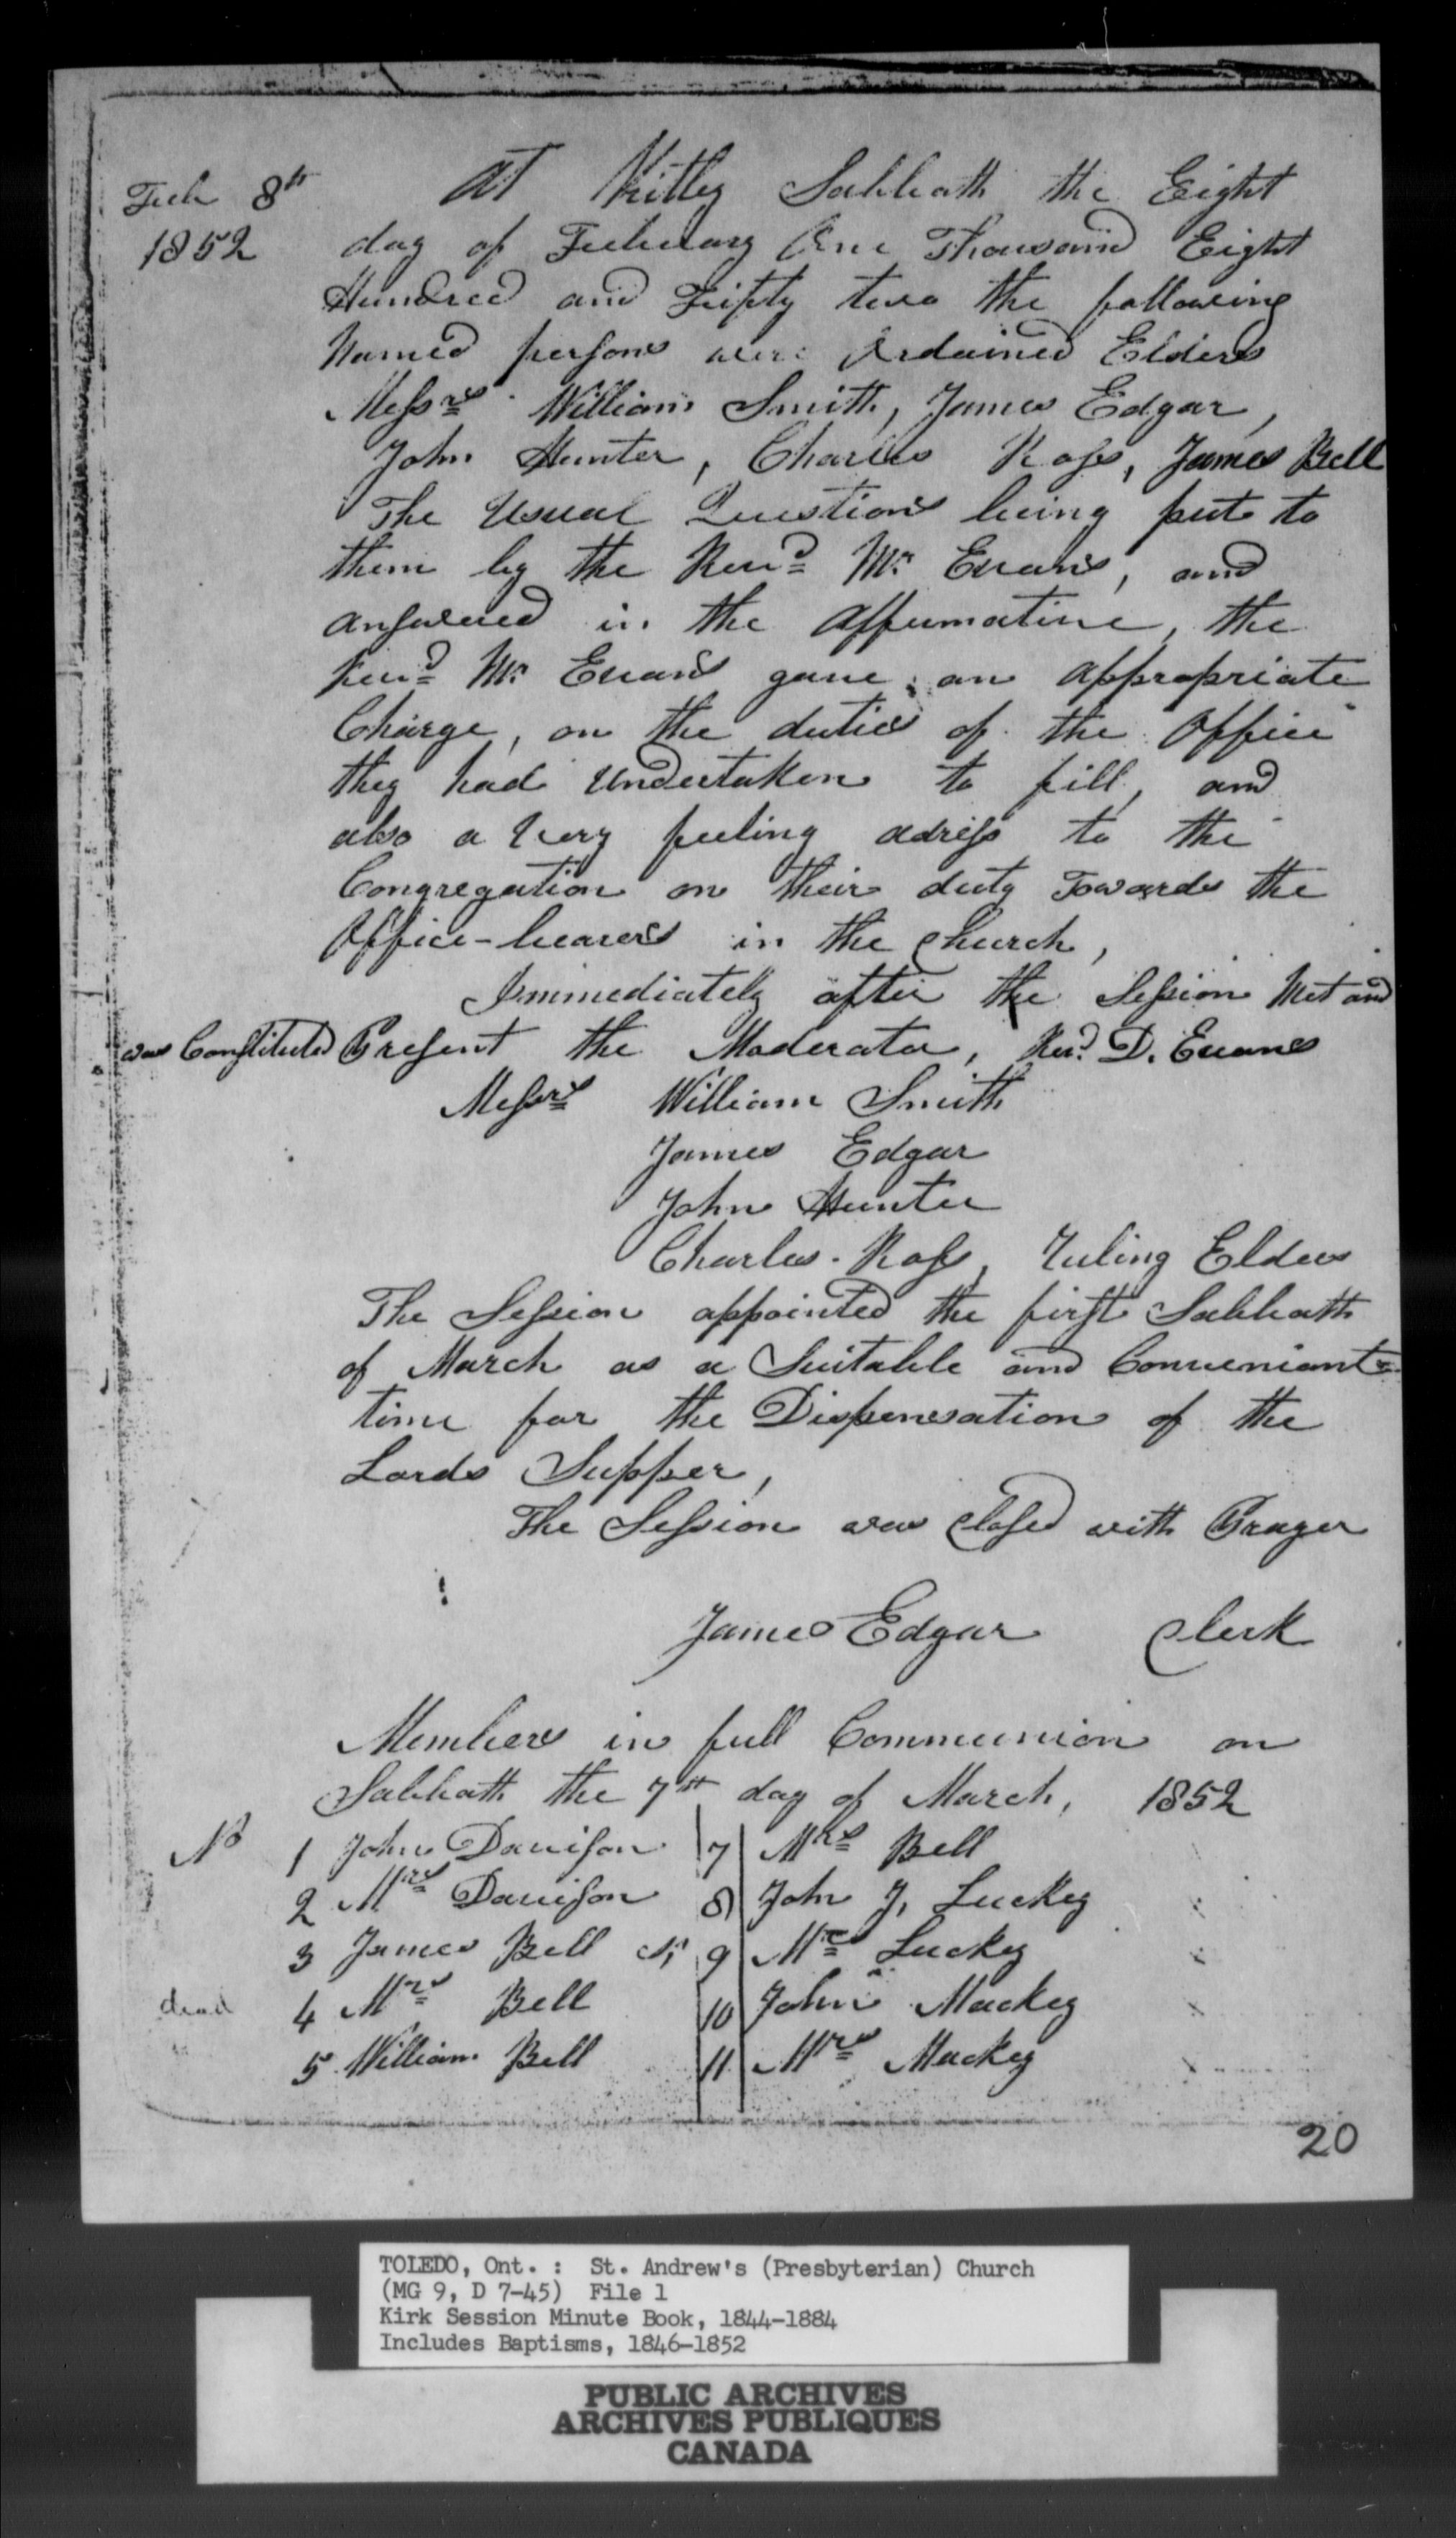 Feb 8th At Kitley Sabbath the Eight
1852 day of February One Thousand Eight
Hundred and Fifty two the following
Named persons were Ordained Elders
Messrs William Smith, James Edgar,
John Hunter, Charles Ross, James Bell
The Usual Questions being put to
them by the Revd Mr Evans, and
answered in the affirmative, the
Revd Mr Evans gave an appropriate
Charge, on the duties of the Office
they had Undertaken to fill, and
also a Very feeling adress to the
Congregation on their duty Towards the
Office-bearers in the Church,
Immediately after the Session Met and
was Constituted Present the Moderator, Revd D. Evans
Messrs William Smith
James Edgar
John Hunter
Charles Ross, ruling Elders
The Session appointed the first Sabbath
of March as a Suitable and Conveniant
time for the Dispensation of the
Lords Supper,
The Session was Closed with Prayer
James Edgar Clerk
Members in full Communion on
Sabbath the 7th day of March, 1852
No 1 John Davison 7 Mrs Bell
2 Mrs Davison 8 John J. Luckey
3 James Bell Sr 9 Mrs Luckey
dead 4 Mrs Bell 10 John Mackey
5 William Bell 11 Mrs Mackey
20
TOLEDO, Ont. : St. Andrew's (Presbyterian) Church
(MG 9, D 7-45) File 1
Kirk Session Minute Book, 1844-1884
Includes Baptisms, 1846-1852
PUBLIC ARCHIVES
ARCHIVES PUBLIQUES
CANADA